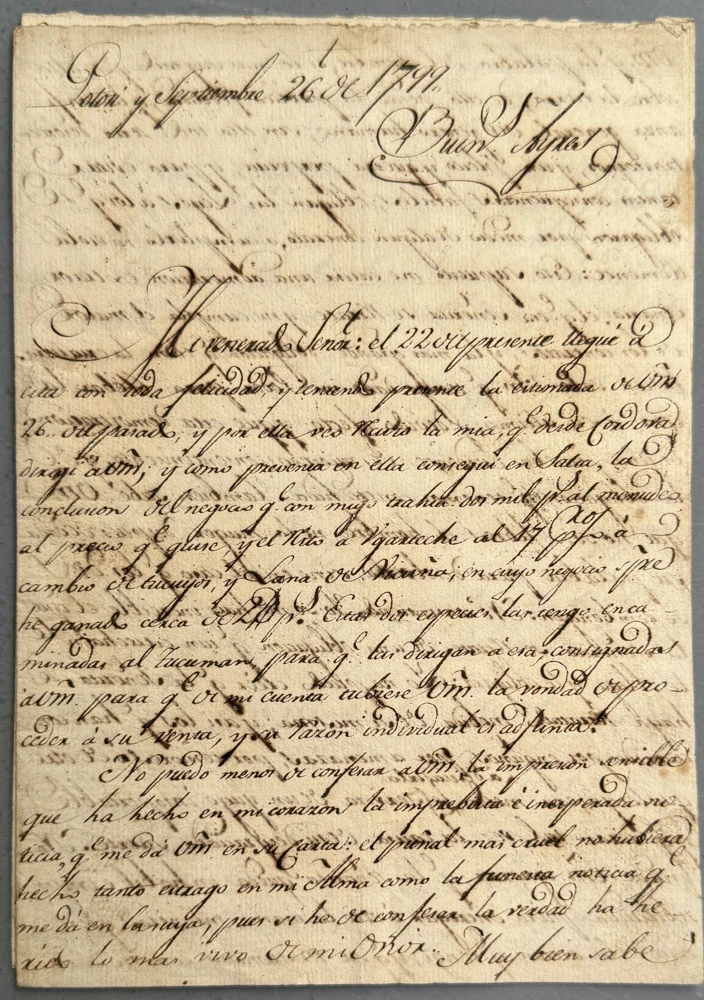 Potosi y Septiembre 26 de 1799.
Buen.s Ayres
Mi venerado Señor: el 22 del presente llegué à
esta con toda felicidad, y teniendo presente la estimada de Vm
26 del pasado, y por ella veo recivio la mia, q.e desde Cordova
dirigi à Vm; y como prevenia en ella consegui en Salta, la
conclusion del negocio q.e con migo trahia: dos mil p.s al menudeo
al precio q.e quise, y el resto à Ygarteche al 17 p%, à
cambio de tucuyos, y Lana de Vicuña; en cuyo negocio spre
he ganado cerca de p.s Estas dos especies las tengo enca-
minadas al Tucuman, para q.e las dirigan à esa, consignadas
à Vm. para q.e de mi cuenta tubiese Vm. la vondad de pro-
ceder à su venta, y su razon individual es adjunta.
No puedo menos de confesar à Vm. la impresion sensible
que ha hecho en mi corazon la improbisa è inesperada no-
ticia q.e me dà Vm en su Carta: el puñal mas cruel no hubiera
hecho tanto estrago en mi Alma como la funesta noticia q.e
me dà en la suya, pues si he de confesar la verdad ha he-
rido lo mas vivo de mi Onor. Muy bien sabe